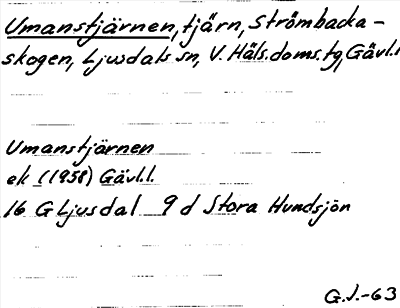 Umanstjärnen, tjärn, Strömbacka-
skogen, Ljusdals sn, V. Häls. doms. tg, Gävl. l
Umanstjärnen
ek (1958) Gävl.l.
16 G Ljusdal 9 d Stora Hundsjön
G.J.-63